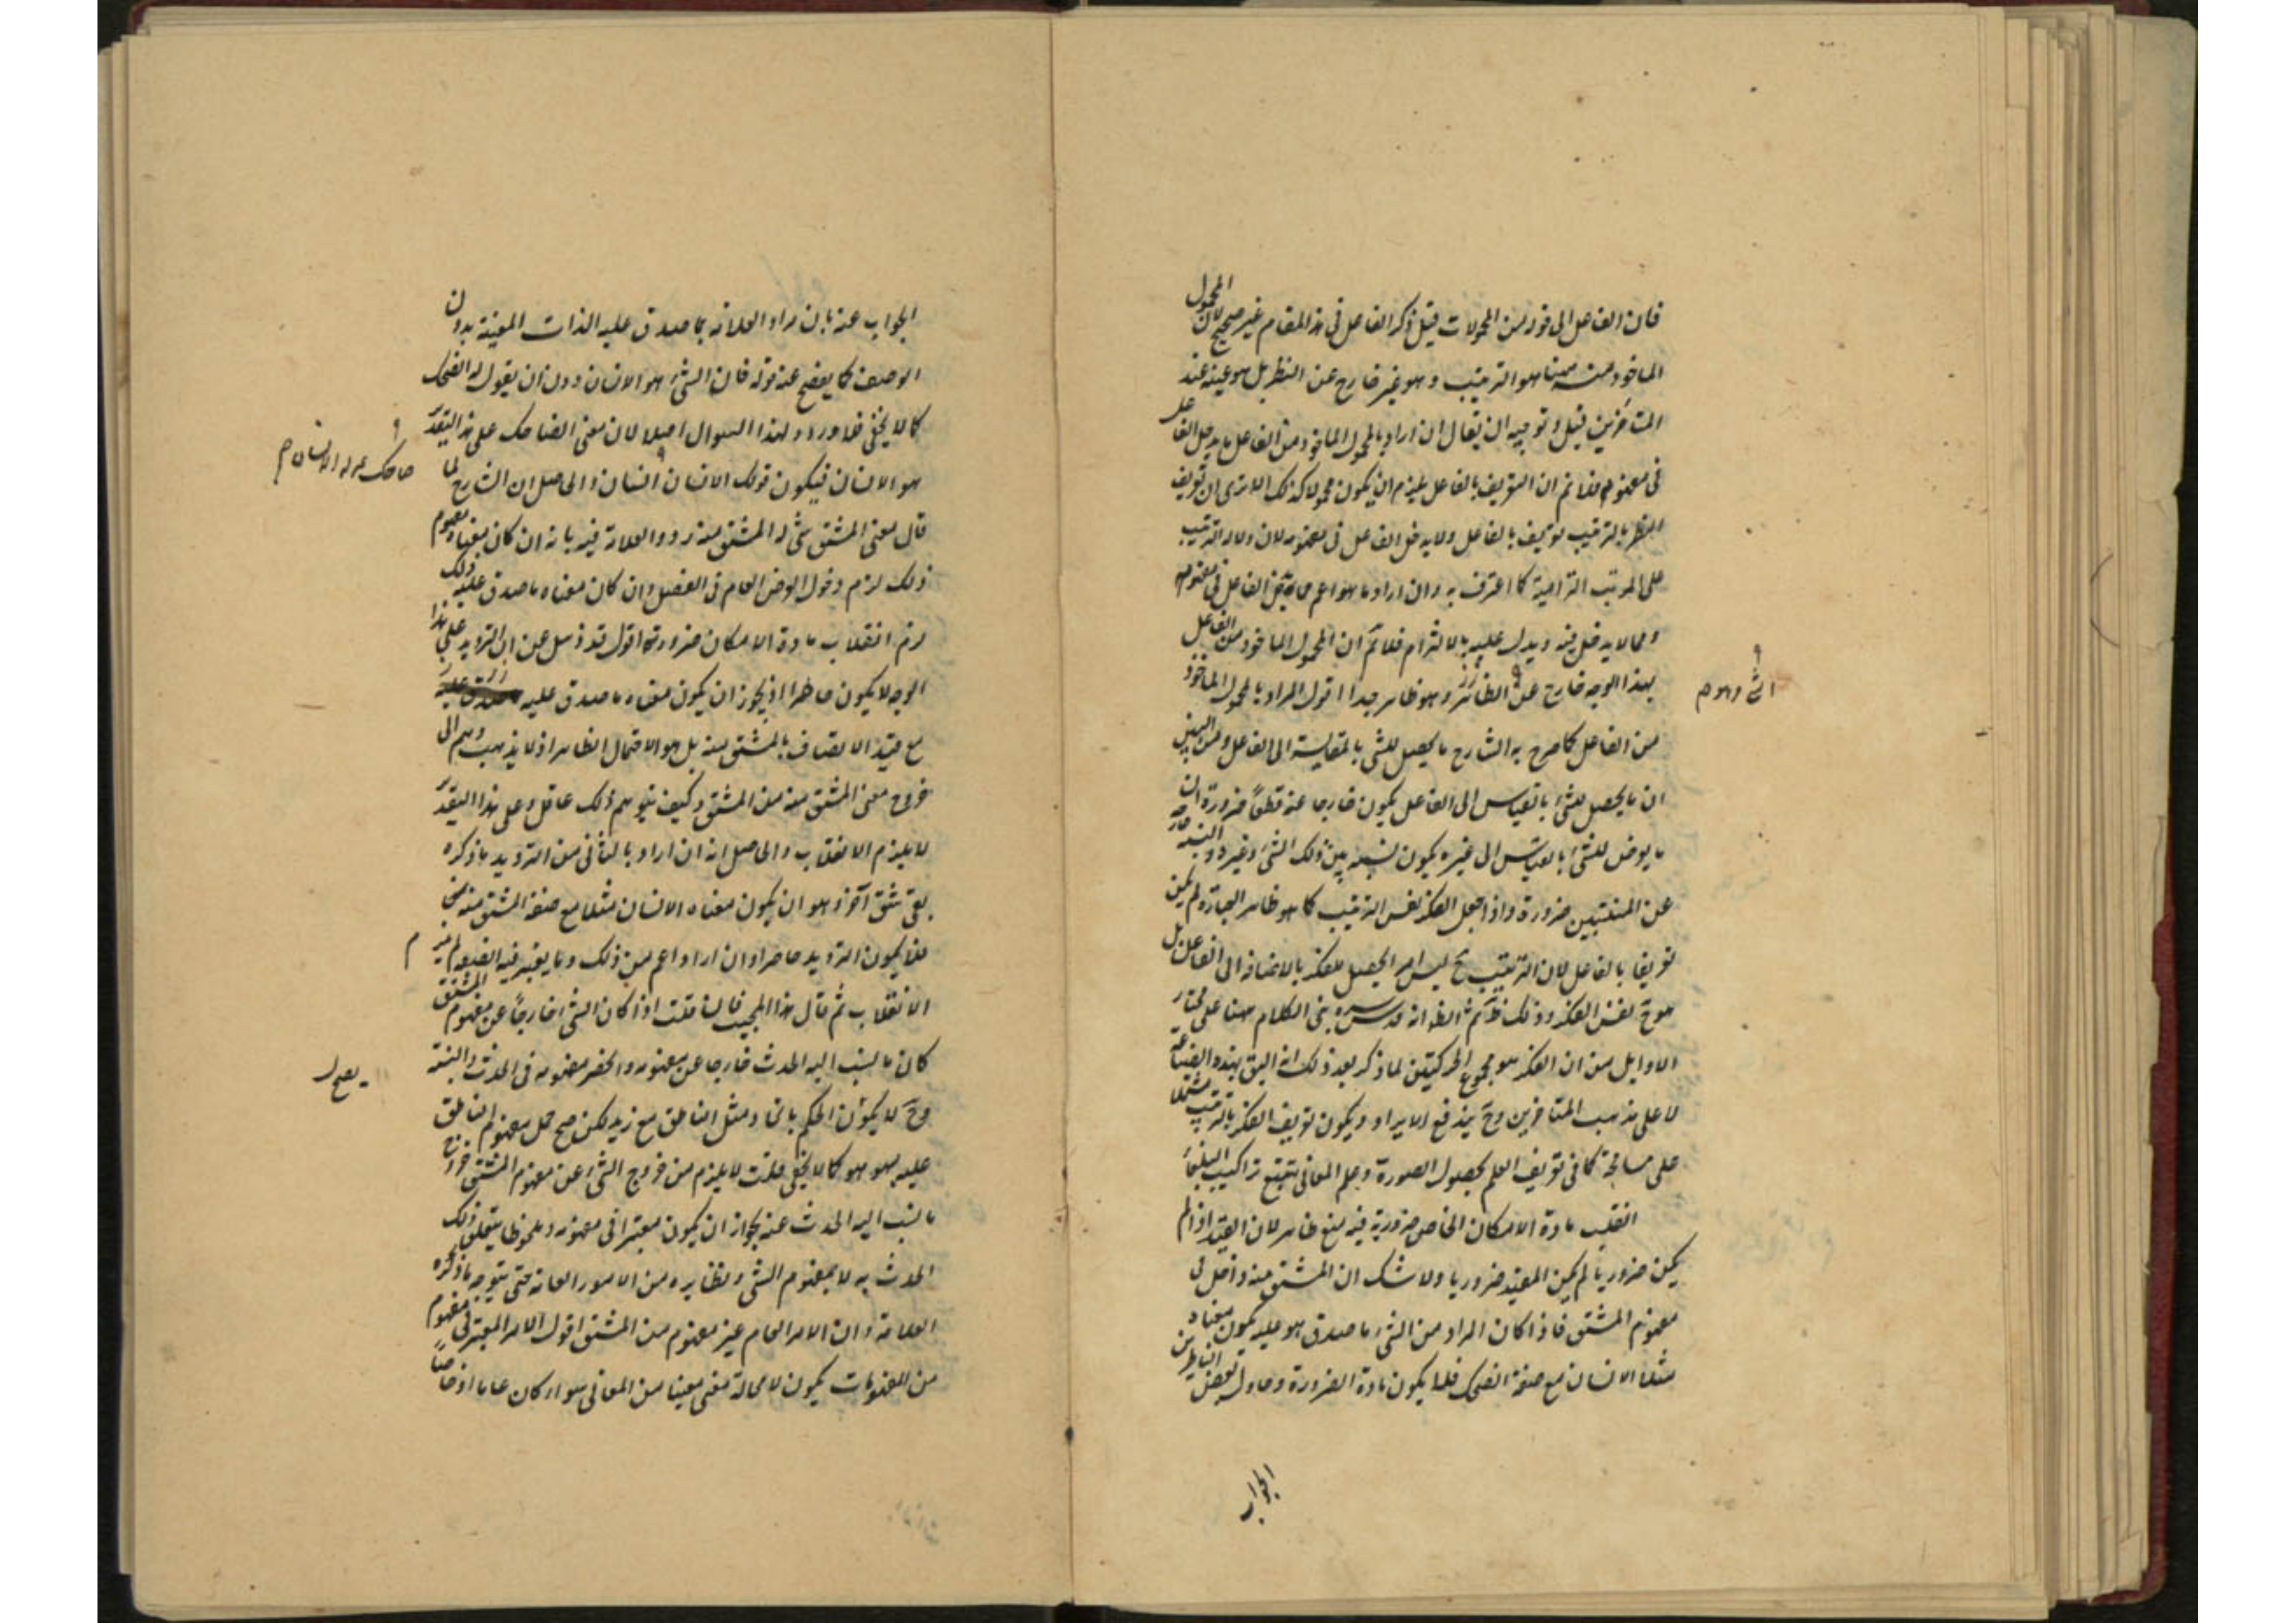 فان الفاعل الی خود من المحمولات قیل ذکر الفاعل فی هذا المقام غیر صحیح لان المحمول
الماخوذ منه ههنا هو الترتیب و هو غیر خارج عن النظر بل هو عینه عند
المتاخرین قیل و توجیهه ان یقال ان اراد بالمحمول الماخوذ من الفاعل ما یدخل الفاعل
فی مفهومه فلا تم ان التعریف بالفاعل یلزم ان یکون محمولا کذلک الا تری ان تعریف
النظر بالترتیب تعریف بالفاعل ولا یدخل الفاعل فی مفهومه لان دلالة الترتیب
علی المرتب التزامیة کما اعترف به وان اراد ما هو اعم مما یدخل الفاعل فی مفهومه
ومما لا یدخل فیه ویدل علیه بالالتزام فلا تم ان المحمول الماخوذ من الفاعل
بهذا الوجه خارج عن و هو ظاهر جدا اقول المراد بالمحمول الماخوذ
من الفاعل کما صرح به الشارح ما یحصل للشی بالمقایسة الی الفاعل ومن البین
ان ما یحصل للشئ بالقیاس الی الفاعل یکون خارجا عنه قطعا ضرورة ان
ما یعرض للشئ بالقیاس الی غیره یکون نسبة بین ذلک الشئ وغیره والنسبة خارجة
عن المنتسبین ضرورة واذا جعل الفکر نفس الترتیب کما هو ظاهر العبارة لم یکن
تعریفا بالفاعل لان الترتیب ح لیس امرا یحصل للفکر بالاضافة الی الفاعل بل
هو ح نفس الفکر وذلک ظ ثم الظ انه قدس سره بنی الکلام ههنا علی مختار
الاوایل من ان الفکر هو مجموع الحرکتین لما ذکر بعد ذلک انه الیق بهذه الصناعة
لا علی مذهب المتاخرین وح یندفع الایراد ویکون تعریف الفکر بالترتیب مشتملا
علی مسامحة کما فی تعریف العلم بحصول الصورة وعلم المعانی بتتبع تراکیب البلغاء
انقلب مادة الامکان الخاص ضروریة فیه منع ظاهر لان القید اذا لم
یکن ضروریا لم یکن المقید ضروریا ولا شک ان المشتق منه داخل فی
مفهوم المشتق فاذا کان المراد من الشئ ما صدق هو علیه یکون معناه
مثلا الانسان مع صفة الضحک فلا یکون مادة الضرورة وحاول بعض الناظرین
الجواب
الجواب عنه بان مراد العلامة بما صدق علیه الذات المعینة بدون
الوصف کما یفصح عنه قوله فان الشئ هو الانسان دون ان یقول له الضحک
کما لا یخفی فلا ورود لهذا السوال اصلا لان معنی الضاحک علی هذا التقدیر
هو الانسان فیکون قولک الانسان انسان والحاصل ان الشارح لما
قال معنی المشتق شئ له المشتق منه ردد العلامة فیه بانه ان کان معناه مفهوم
ذلک لزم دخول العرض العام فی الفصل وان کان معناه ما صدق علیه ذلک
لزم انقلاب مادة الامکان ضرورة اقول قد ذهل عن ان التردید علی هذا
الوجه لا یکون حاصرا اذ یجوز ان یکون معناه ما صدق علیه
مع قید الاتصاف بالمشتق منه بل هو الاحتمال الظاهر اذ لا یذهب وهم الی
خروج معنی المشتق منه من المشتق وکیف یتوهم ذلک عاقل وعلی هذا التقدیر
لا یلزم الانقلاب والحاصل انه ان اراد بالثانی من التردید ما ذکره
بقی شق آخر وهو ان یکون معناه الانسان مثلا مع صفة المشتق منه
فلا یکون التردید حاصرا وان اراد اعم من ذلک ومما یعتبر فیه القید لم یتم
الانقلاب ثم قال هذا المجیب فان قلت اذا کان الشئ خارجا عن مفهوم المشتق
کان ما ینسب الیه الحدث خارجا عن مفهومه وانحصر مفهومه فی الحدث والنسبة
وح لا یکون الحکم باتحاد مثل الناطق مع زید لکن صح حمل مفهوم الناطق
علیه بهو هو کما لا یخفی قلت لا یلزم من خروج الشئ عن مفهوم المشتق خروج
ما ینسب الیه الحدث عنه بجواز ان یکون معتبرا فی مفهومه وملحوظا یتعلق ذلک
الحدث به لا بمفهوم الشئ ونظایره من الامور العامة حتی یتوجه ما ذکره
العلامة وان الامر العام غیر مفهوم من المشتق اقول الامر المعتبر فی مفهوم
من المفهومات یکون لا محالة معنی معینا من المعانی سواء کان عاما او خاصا